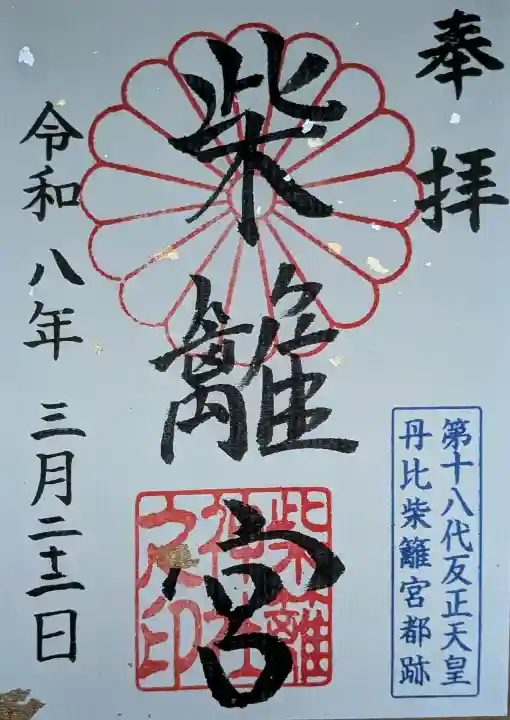 奉拝
柴籬宮
柴籬神社之印
第十八代反正天皇
丹比柴籬宮都跡
令和八年三月二十二日